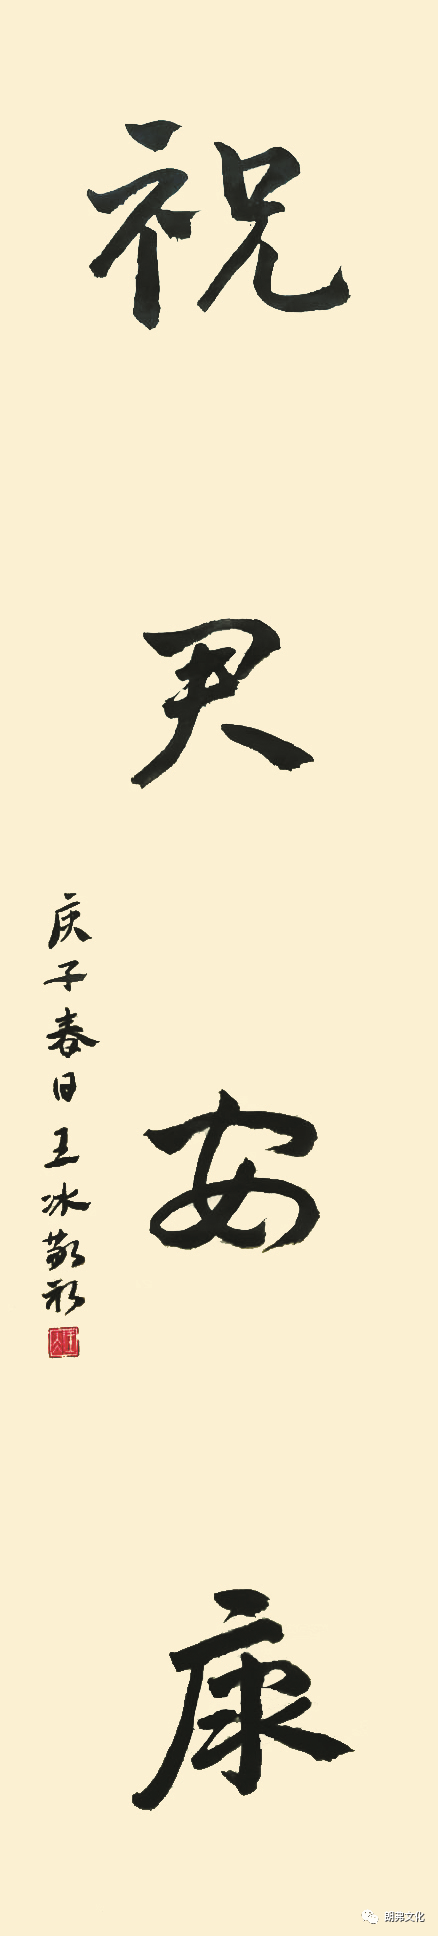 祝君安康
庚子春日王冰敬祝
朗弗文化